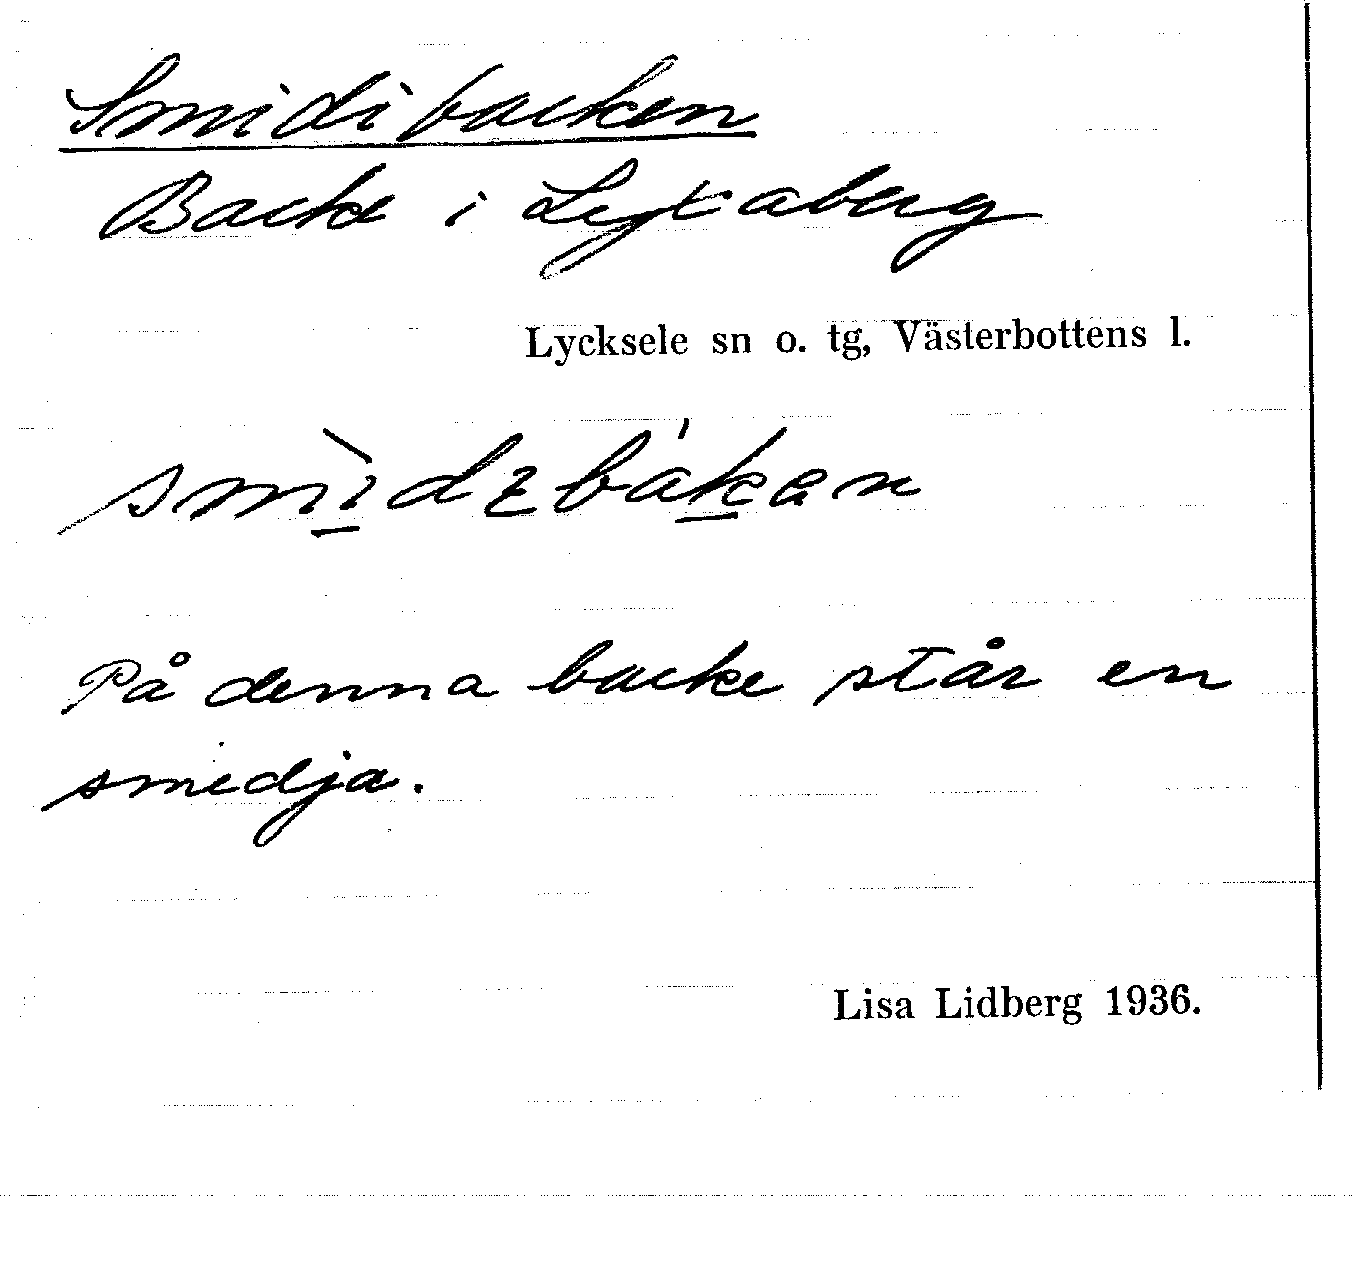 Smidibacken
Backe i Lyxaberg
Lycksele sn o. tg, Västerbottens l.
På denna backe står en
smedja.
Lisa Lidberg 1936.